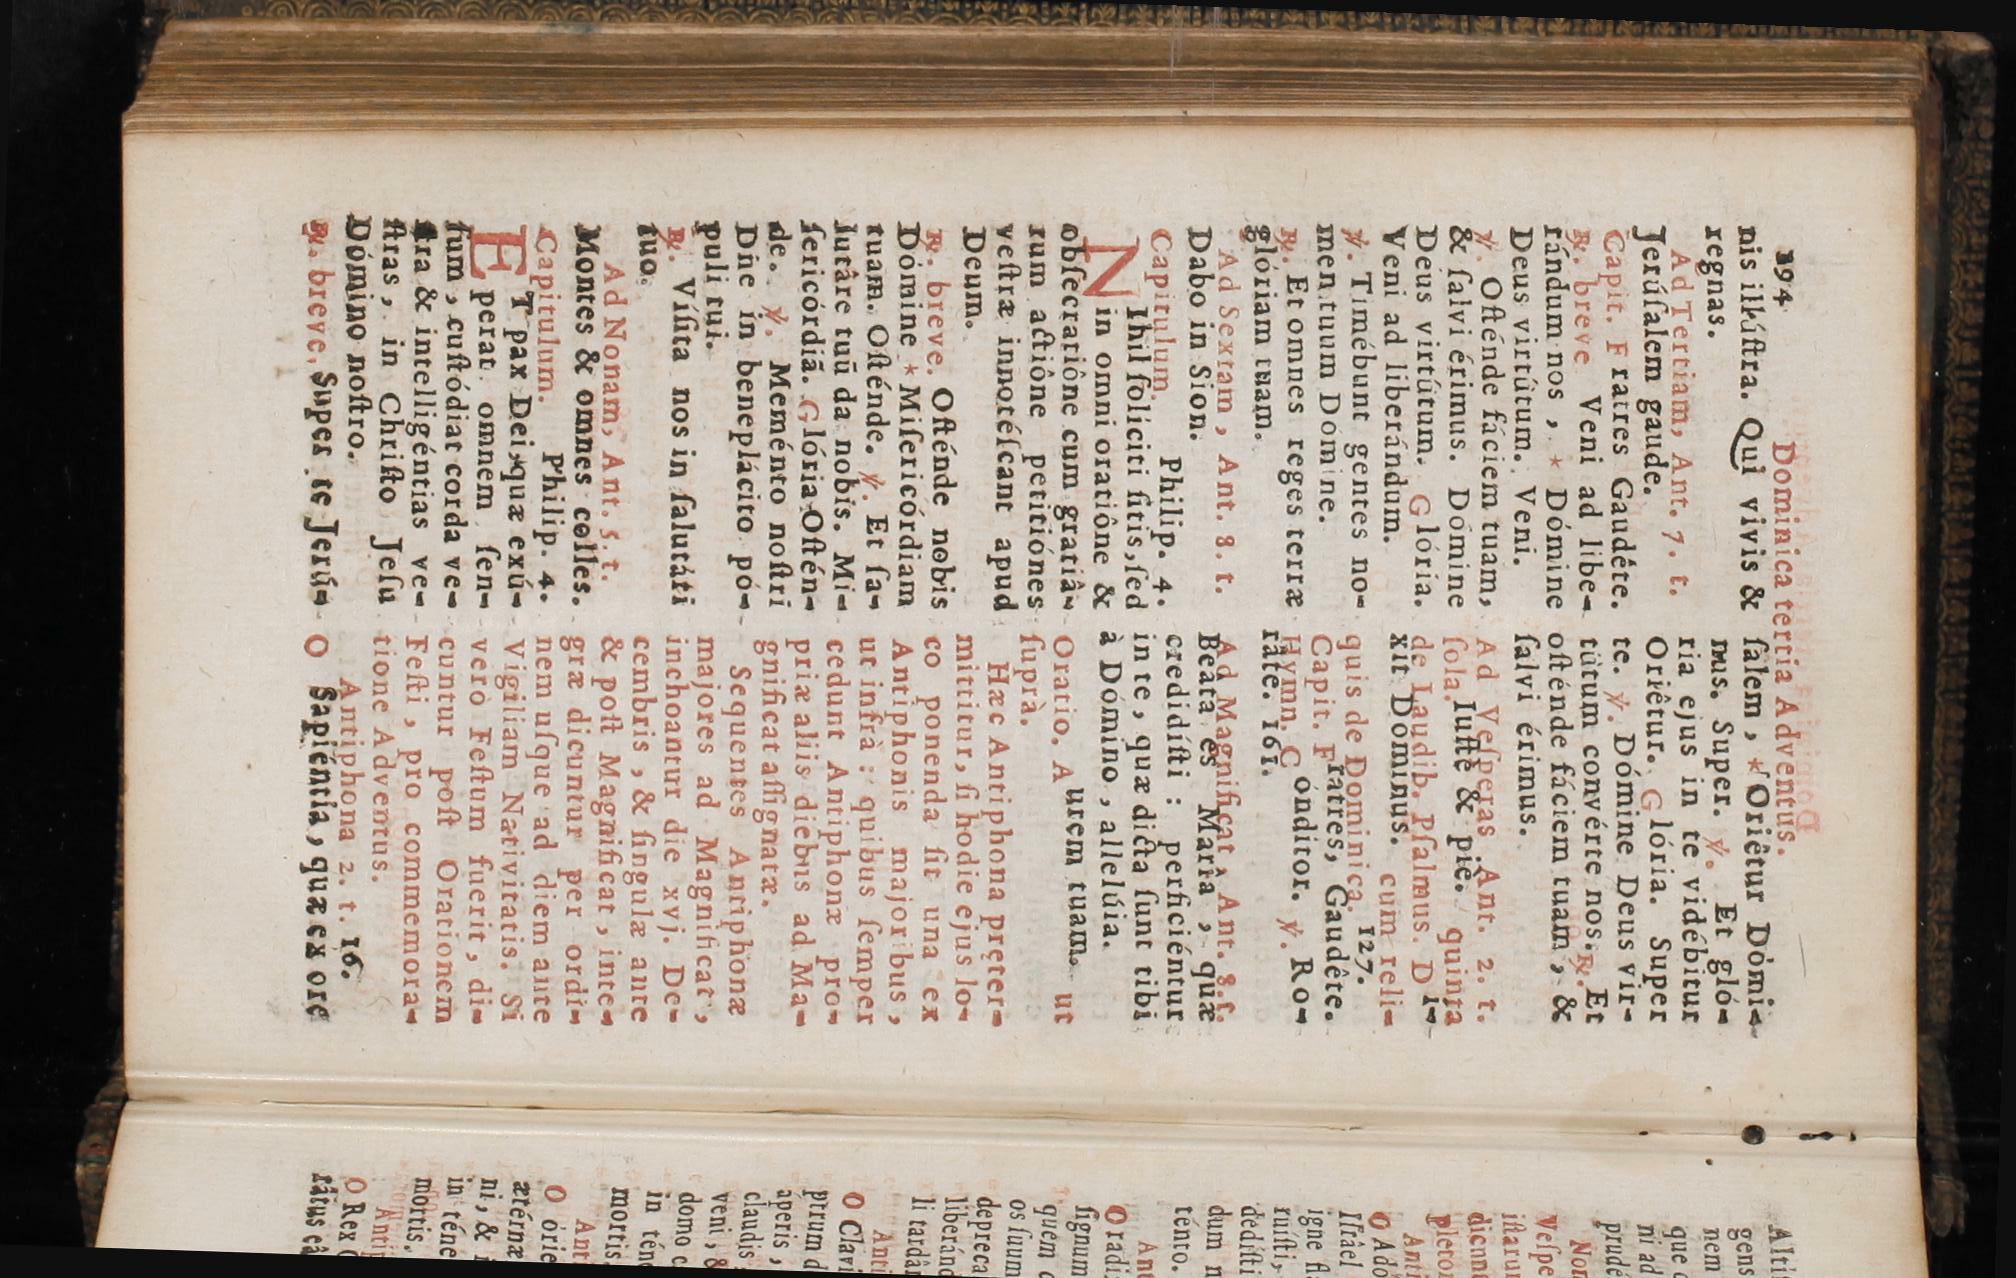 194 Dominica tertia Adventus.
nis illúſtra. Qui vivis &
regnas.
Ad Tertiam, Ant. 7. t.
Jerúſalem gaude.
Capit. Fratres Gaudête.
℟. breve Veni ad libe-
rándum nos, * Dómine
Deus virtútum. Veni.
℣. Oſténde fáciem tuam,
& ſalvi érimus. Dómine
Deus virtútum. Glória.
Veni ad liberándum.
℣. Timébunt gentes no-
men tuum Dómine.
℟. Et omnes reges terræ
glóriam tuam.
Ad Sextam, Ant. 8. t.
Dabo in Sion.
Capitulum. Philip. 4.
NIhil ſolíciti ſitis, ſed
in omni oratiône &
obſecratiône cum gratiâ-
rum actiône petitiónes
veſtræ innotéſcant apud
Deum.
℟. breve. Oſténde nobis
Dómine * Miſericórdiam
tuam. Oſténde. ℣. Et ſa-
lutâre tuū da nobis. Mi-
ſericórdiā. Glória Oſtén-
de. ℣. Meménto noſtri
Dñe in beneplácito pó-
puli tui.
℟. Víſita nos in ſalutáti
tuo.
Ad Nonam, Ant. 5. t.
Montes & omnes colles.
Capitulum. Philip. 4.
ET pax Dei, quæ exú-
perat omnem ſen-
ſum, cuſtódiat corda ve-
ſtra & intelligéntias ve-
ſtras, in Chriſto Jeſu
Dómino noſtro.
℟. breve. Super te Jerú-
ſalem, * Oriêtur Dómi-
nus. Super. ℣. Et gló-
ria ejus in te vidébitur
Oriêtur. Glória. Super
te. ℣. Dómine Deus vir-
tùtum convérte nos. ℟. Et
oſténde fáciem tuam, &
ſalvi érimus.
Ad Veſperas Ant. 2. t.
ſola. Iuſtè & piè. quinta
de Laudib. Pſalmus. Di-
xit Dóminus. cum reli-
quis de Dominica. 127.
Capit. Fratres, Gaudête.
Hymn. Cónditor. ℣. Ro-
râte. 161.
Ad Magnificat Ant. 8. t.
Beáta es María, quæ
credidíſti: perficiéntur
in te, quæ dicta ſunt tibi
à Dómino, allelúia.
Oratio. Aurem tuam. ut
ſuprà.
Hæc Antiphona pręter-
mittitur, ſi hodie ejus lo-
co ponenda ſit una ex
Antiphonis majoribus,
ut infrà: quibus ſemper
cedunt Antiphonæ pro-
priæ aliis diebus ad Ma-
gnificat aſſignatæ.
Sequentes Antiphonæ
majores ad Magnificat,
inchoantur die xvj. De-
cembris, & ſingulæ ante
& poſt Magnificat, inte-
græ dicuntur per ordi-
nem uſque ad diem ante
Vigiliam Nativitatis. Si
verò Feſtum fuerit, di-
cuntur poſt Orationem
Feſti, pro commemora-
tione Adventus.
Antiphona 2. t. 16.
O Sapiéntia, quæ ex ore
Altiſ
gens
nem
que
ni ad
prudé
Non
Veſpe
iſtarum
dicunt
pleton
Anti
O Ado
Iſrâel
igne fl
ruíſti,
dedíſti
dum n
ténto.
Ant
O radi
ſignum
quem
os ſuum
depreca
liberánd
li tardâr
Anti
O Clavi
ptrum d
aperis,
claudis
veni, &
domo c
in téne
mortis.
Ant
O órie
ætérnæ
ni, &
in téne
mortis.
Anti
O Rex